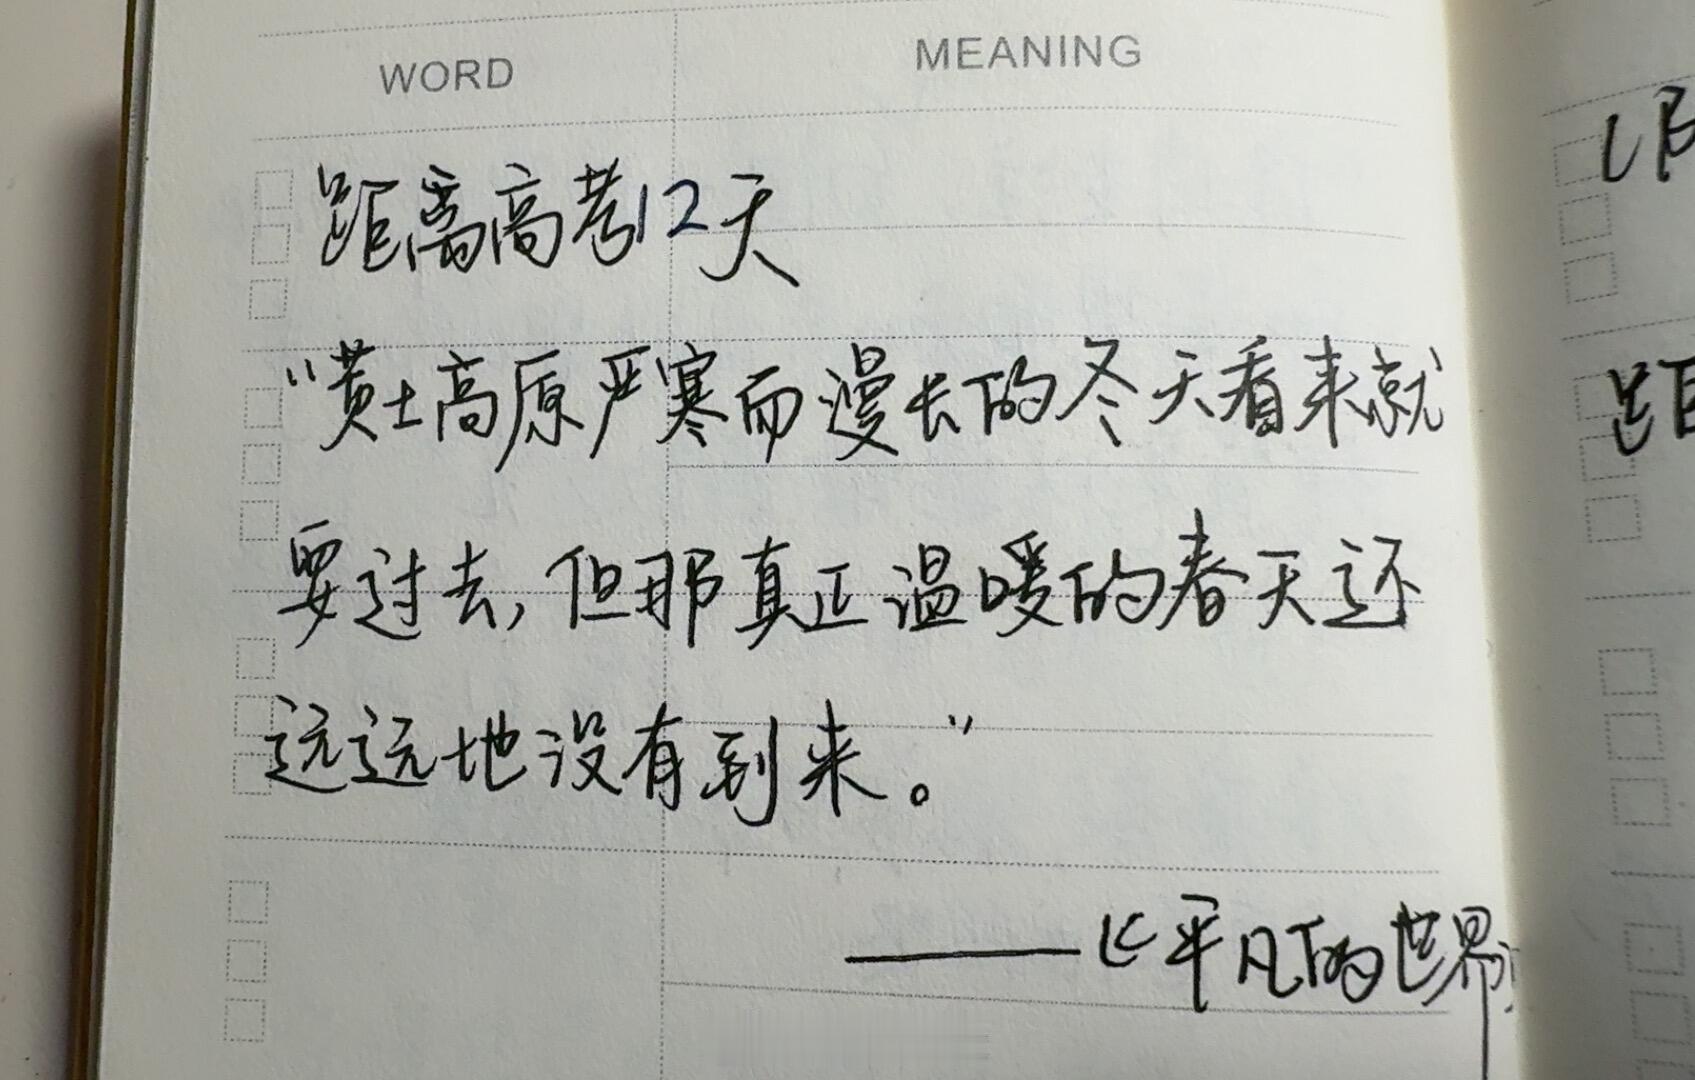 WORD MEANING
距离高考12天
“黄土高原严寒而漫长的冬天看来就
要过去,但那真正温暖的春天还
远远地没有到来。”
——《平凡的世界》